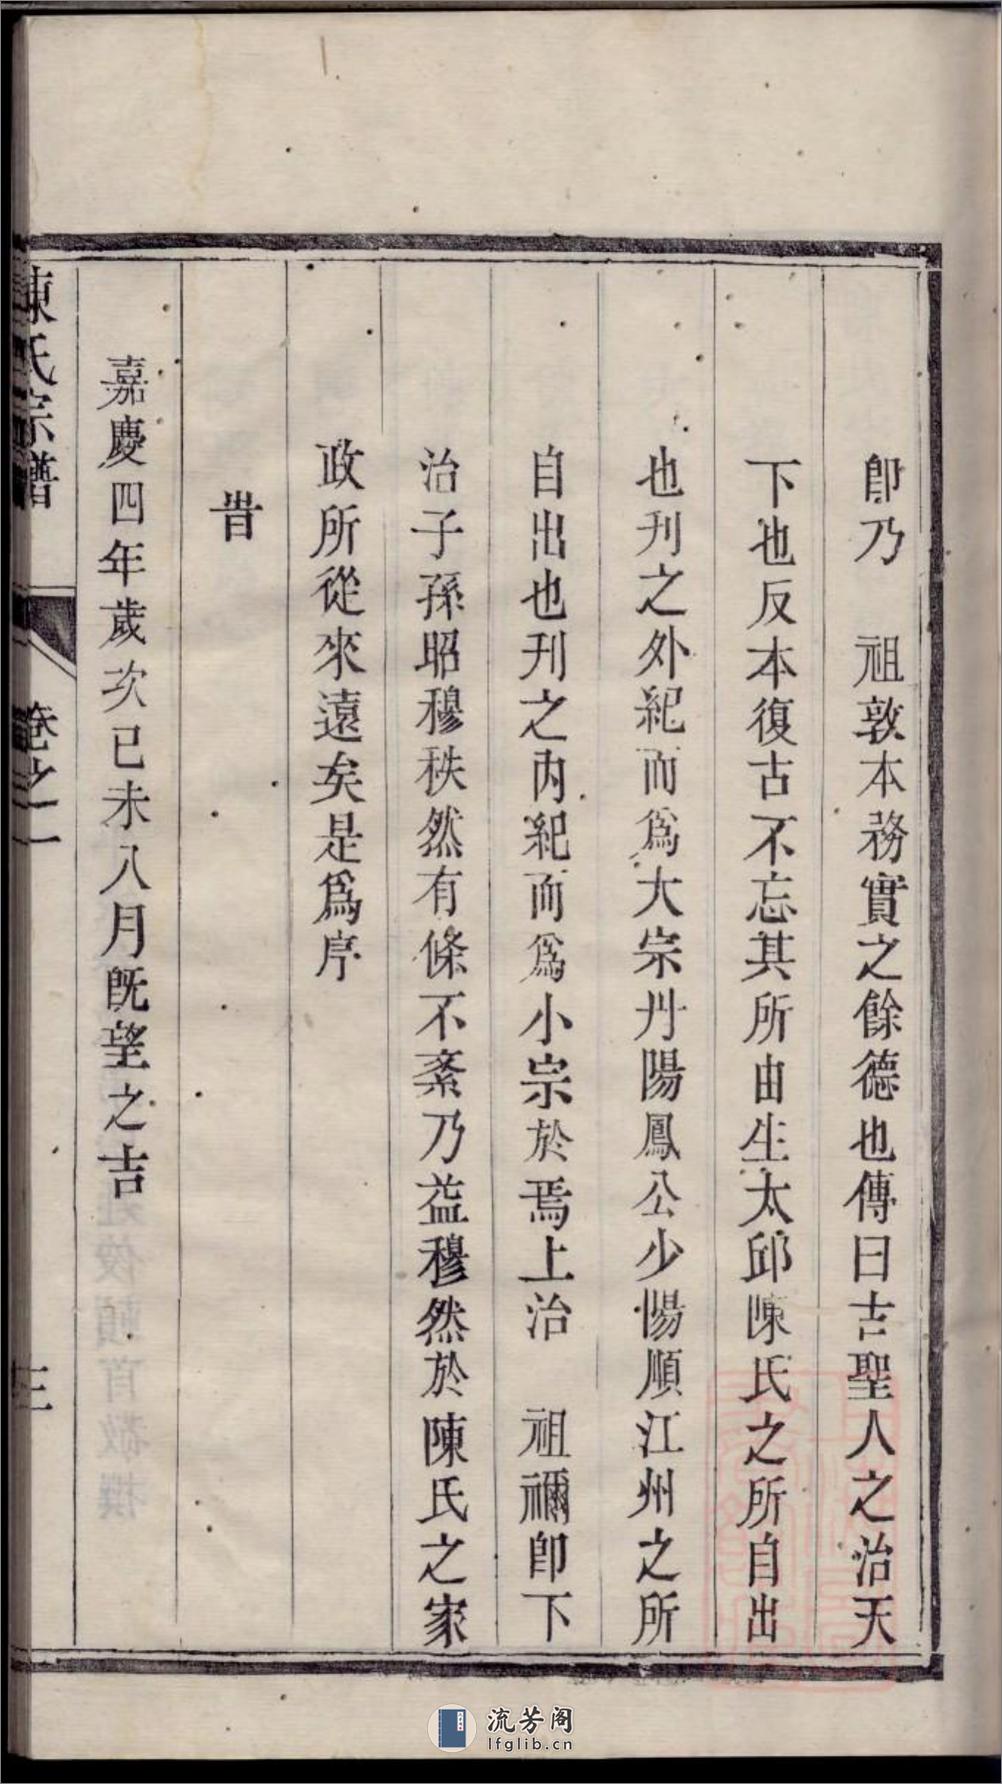 卽乃　祖敦本務實之餘德也傳曰古聖人之治天
下也反本復古不忘其所由生太邱陳氏之所自出
也刋之外紀而爲大宗丹陽鳳公少惕順江州之所
自出也刋之内紀而爲小宗於焉上治　祖禰卽下
治子孫昭穆秩然有條不紊乃益穆然於陳氏之家
政所從來遠矣是爲序
旹
嘉慶四年歲次已未八月旣望之吉
陳氏宗譜
卷之一
三
流芳阁
lfglib.cn